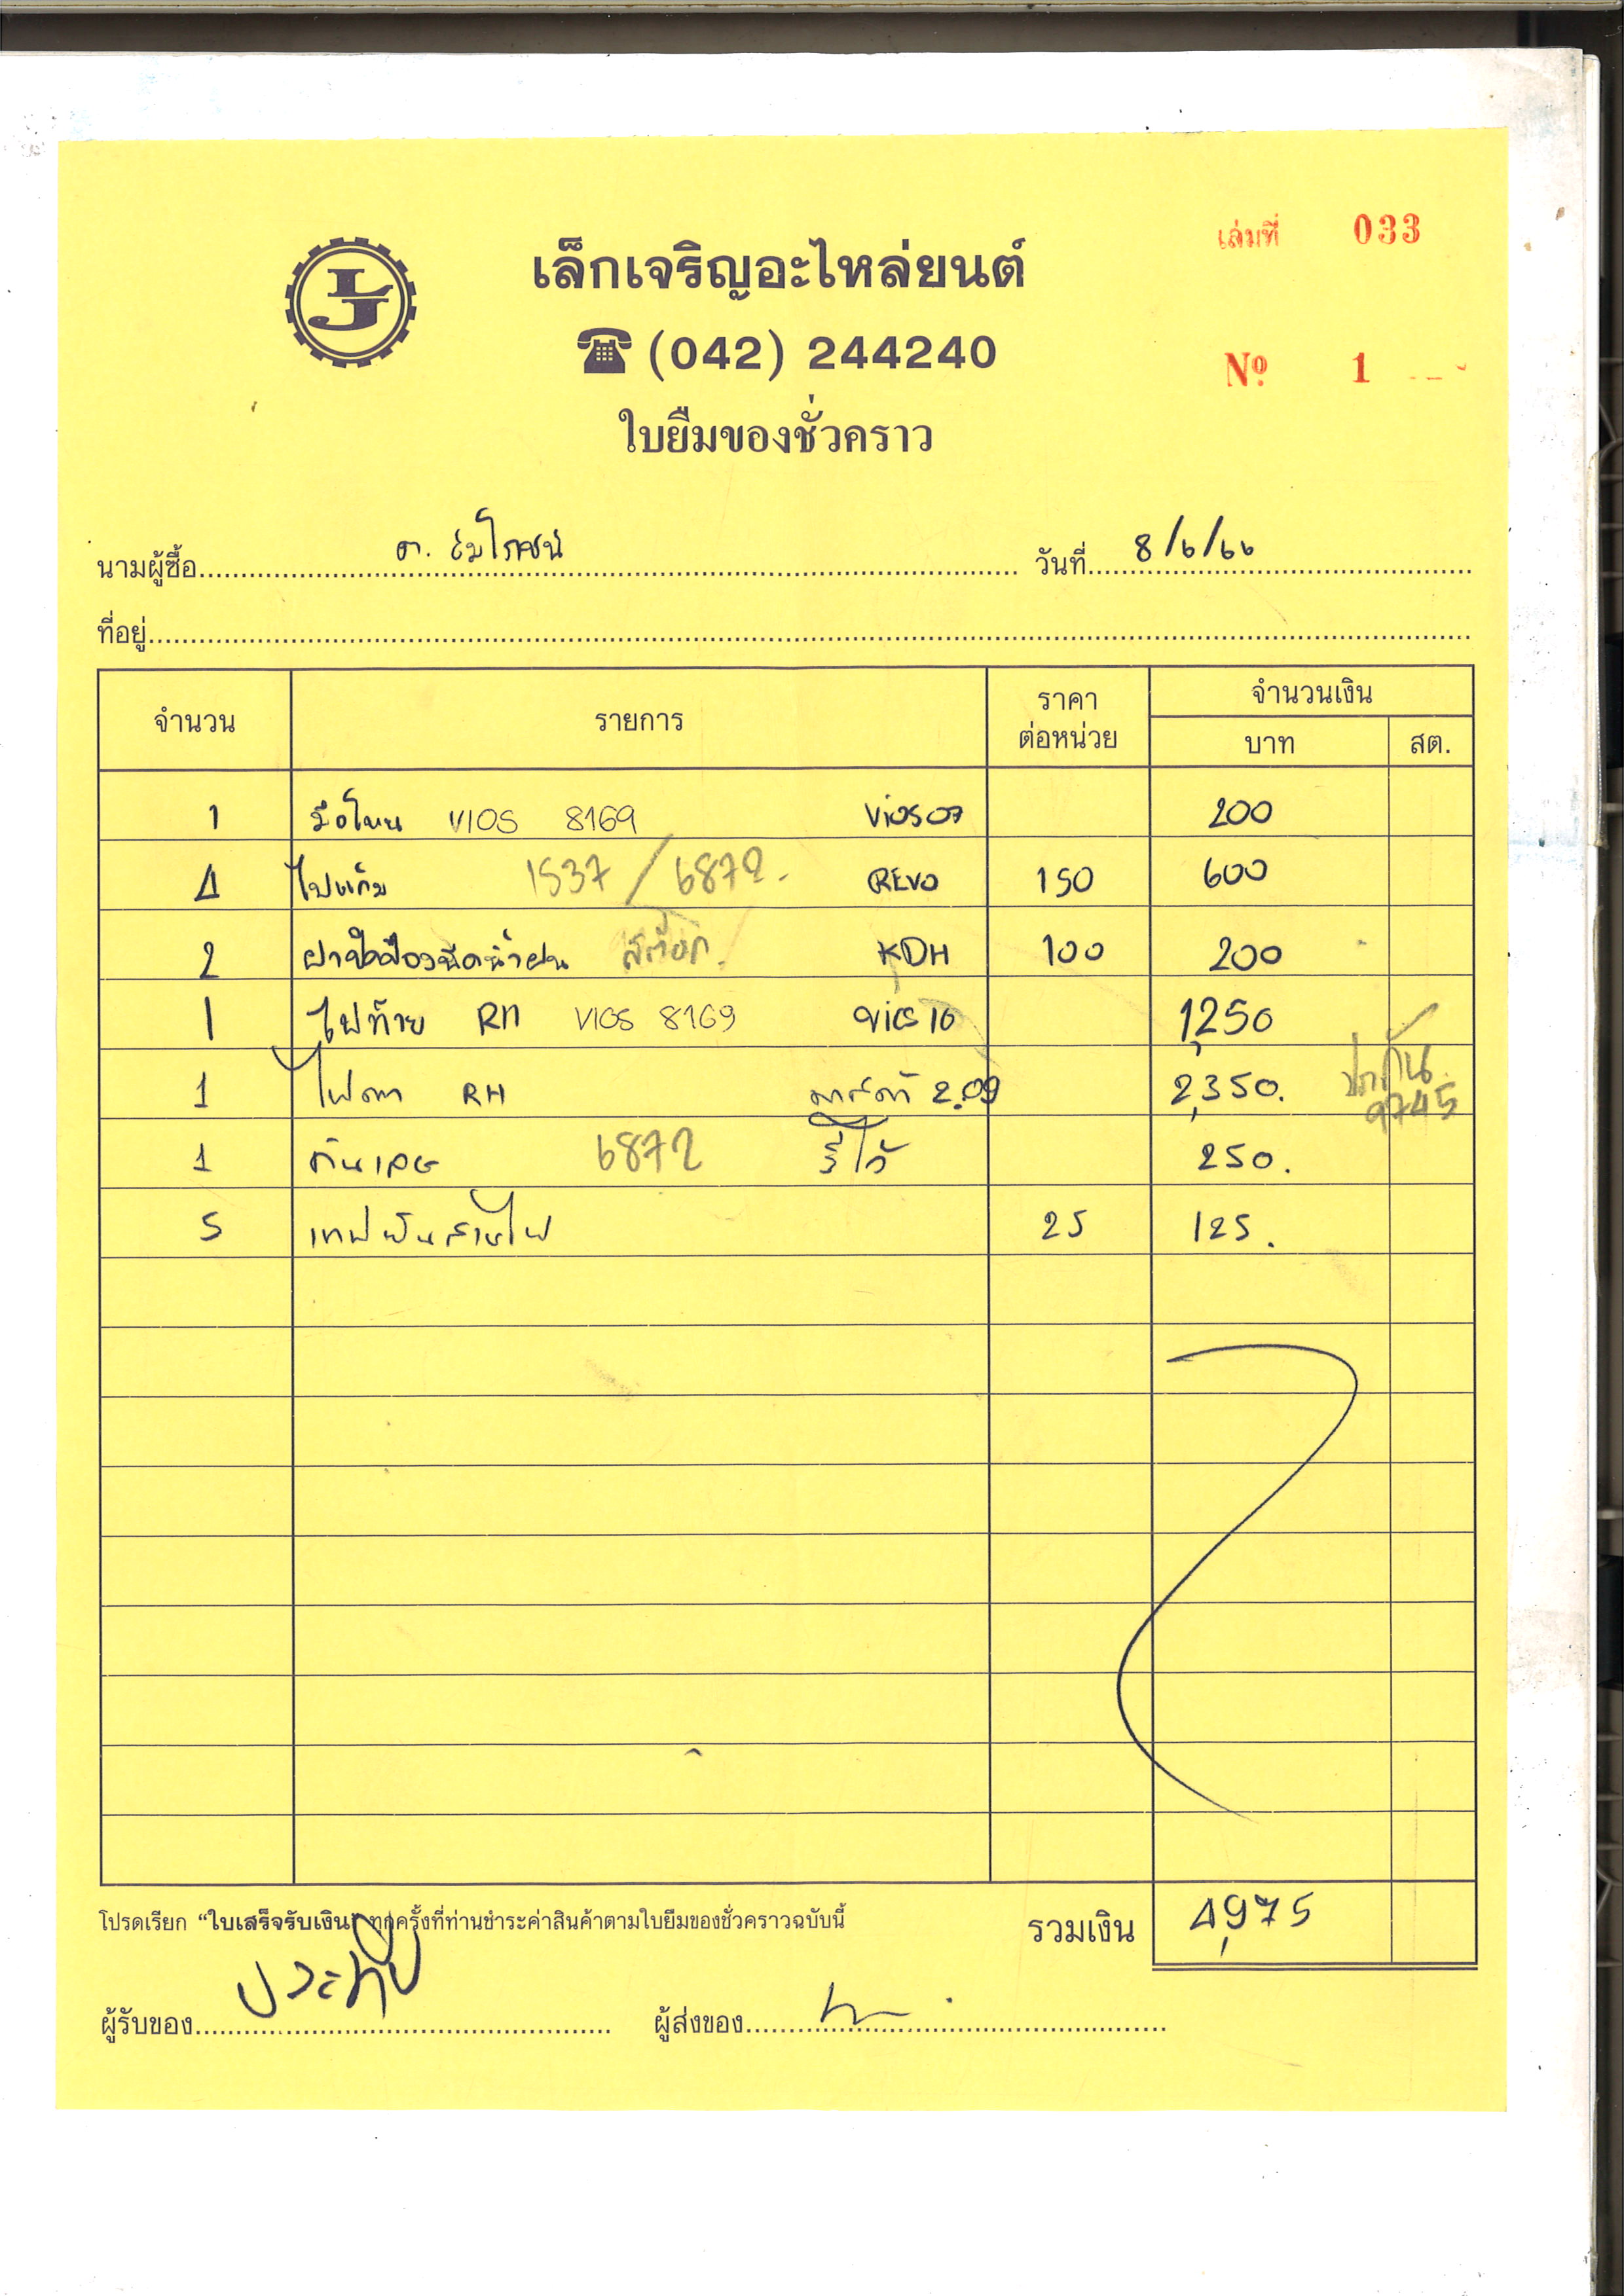 เล่มที่ 033
LJ
เล็กเจริญอะไหล่ยนต์
(042) 244240
Nº 1
ใบยืมของชั่วคราว
นามผู้ซื้อ วันที่ 8/6/66
ที่อยู่
จำนวน รายการ ราคาต่อหน่วย จำนวนเงิน
บาท สต.
1 มือโหน VIOS 8169 Vios 07 200
4 ไฟแก้ม 1537 / 6872 REVO 150 600
2 ฝาปิดป๋องฉีดน้ำฝน สต๊อก KDH 100 200
1 ไฟท้าย RH VIOS 8169 vios 10 1,250
1 ไฟตา RH 2.09 2,350. ประกัน 9745
1 6872 รีโว้ 250.
5 เทปพันสายไฟ 25 125.
โปรดเรียก “ใบเสร็จรับเงิน” ทุกครั้งที่ท่านชำระค่าสินค้าตามใบยืมของชั่วคราวฉบับนี้ รวมเงิน 4,975
ผู้รับของ ประทีป ผู้ส่งของ